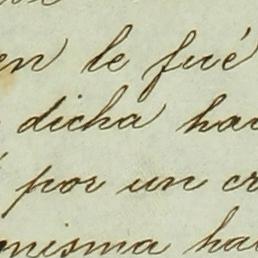 en le fué
dicha ha
por un cr
misma ha